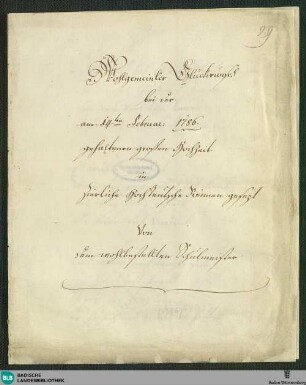 29
Wohlgemeinter Glückwunsch
bei der
am 19ten Februar 1786.
gehaltenen großen Hochzeit
in
zierliche Hochdeutsche Reimen gesezt
Von
dem wohlbestallten Schulmeister
BLB BADISCHE
LANDESBIBLIOTHEK
Baden-Württemberg